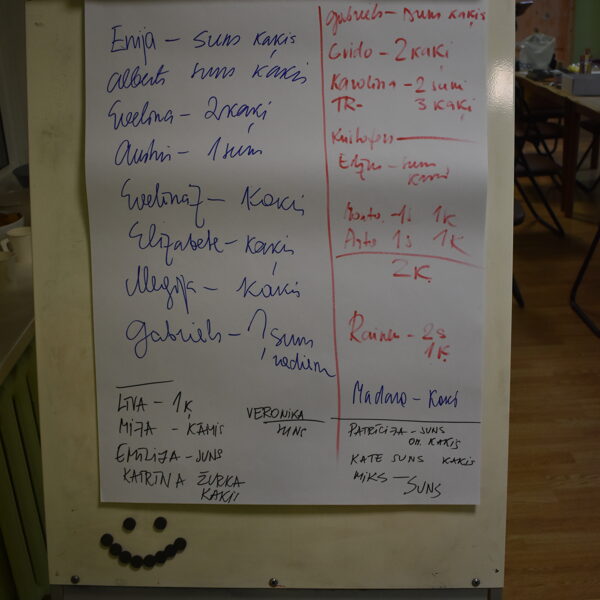 Enija – suns kaķis
Alberts suns kaķis
Evelina – 2 kaķi
Austris – 1 suns
Evelina Z – Kaķis
Elizabete – kaķis
Megija – kaķis
Gabriels – 1 suns
LĪVA – 1 Ķ
MIJA – KAĶIS
EMĪLIJA – SUNS
KATRĪNA ŽURKA
KAĶIS
VERONIKA
SUNS
Gabriels – suns kaķis
Gvido – 2 kaķi
Karolīna – 2 suņi
TR– 3 KAĶI
Kristofers
– suns
kaķis
– 1s 1Ķ
1s 1Ķ
2 Ķ.
– 2s
1Ķ
Madara – Kaķi
PATRĪCIJA – SUNS
KAĶIS
KATE SUNS KAĶIS
MIKS – SUNS